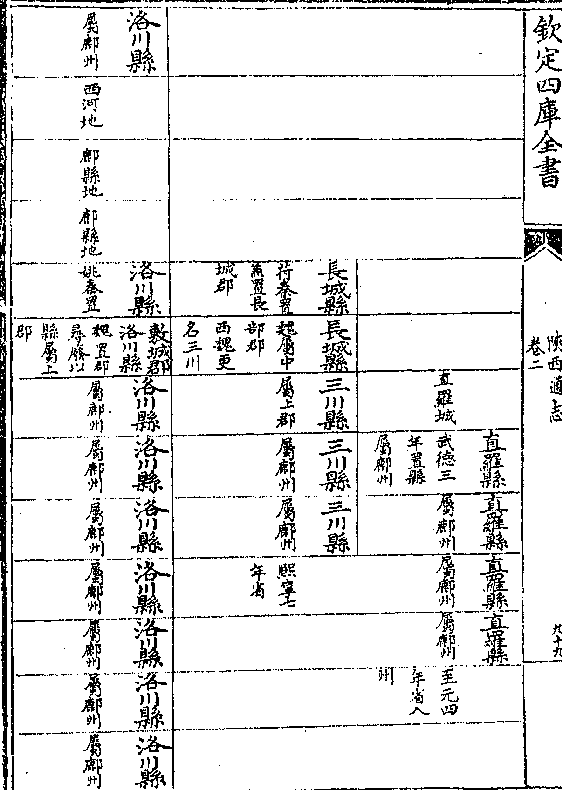 欽定四庫全書
陜西通志
卷二
九十九
直羅城
直羅縣
武德三
年置縣
屬鄜州
直羅縣
屬鄜州
直羅縣
屬鄜州
直羅縣
屬鄜州
至元四
年省入
州
長城縣
苻秦置
兼置長
城郡
長城縣
魏屬中
部郡
西魏更
名三川
三川縣
屬上郡
三川縣
屬鄜州
三川縣
屬鄜州
熙寧七
年省
洛川縣
屬鄜州
西河地
鄜縣地
鄜縣地
洛川縣
姚秦置
敷城郡
洛川縣
魏置郡
尋廢以
縣屬上
郡
洛川縣
屬鄜州
洛川縣
屬鄜州
洛川縣
屬鄜州
洛川縣
屬鄜州
洛川縣
屬鄜州
洛川縣
屬鄜州
洛川縣
屬鄜州